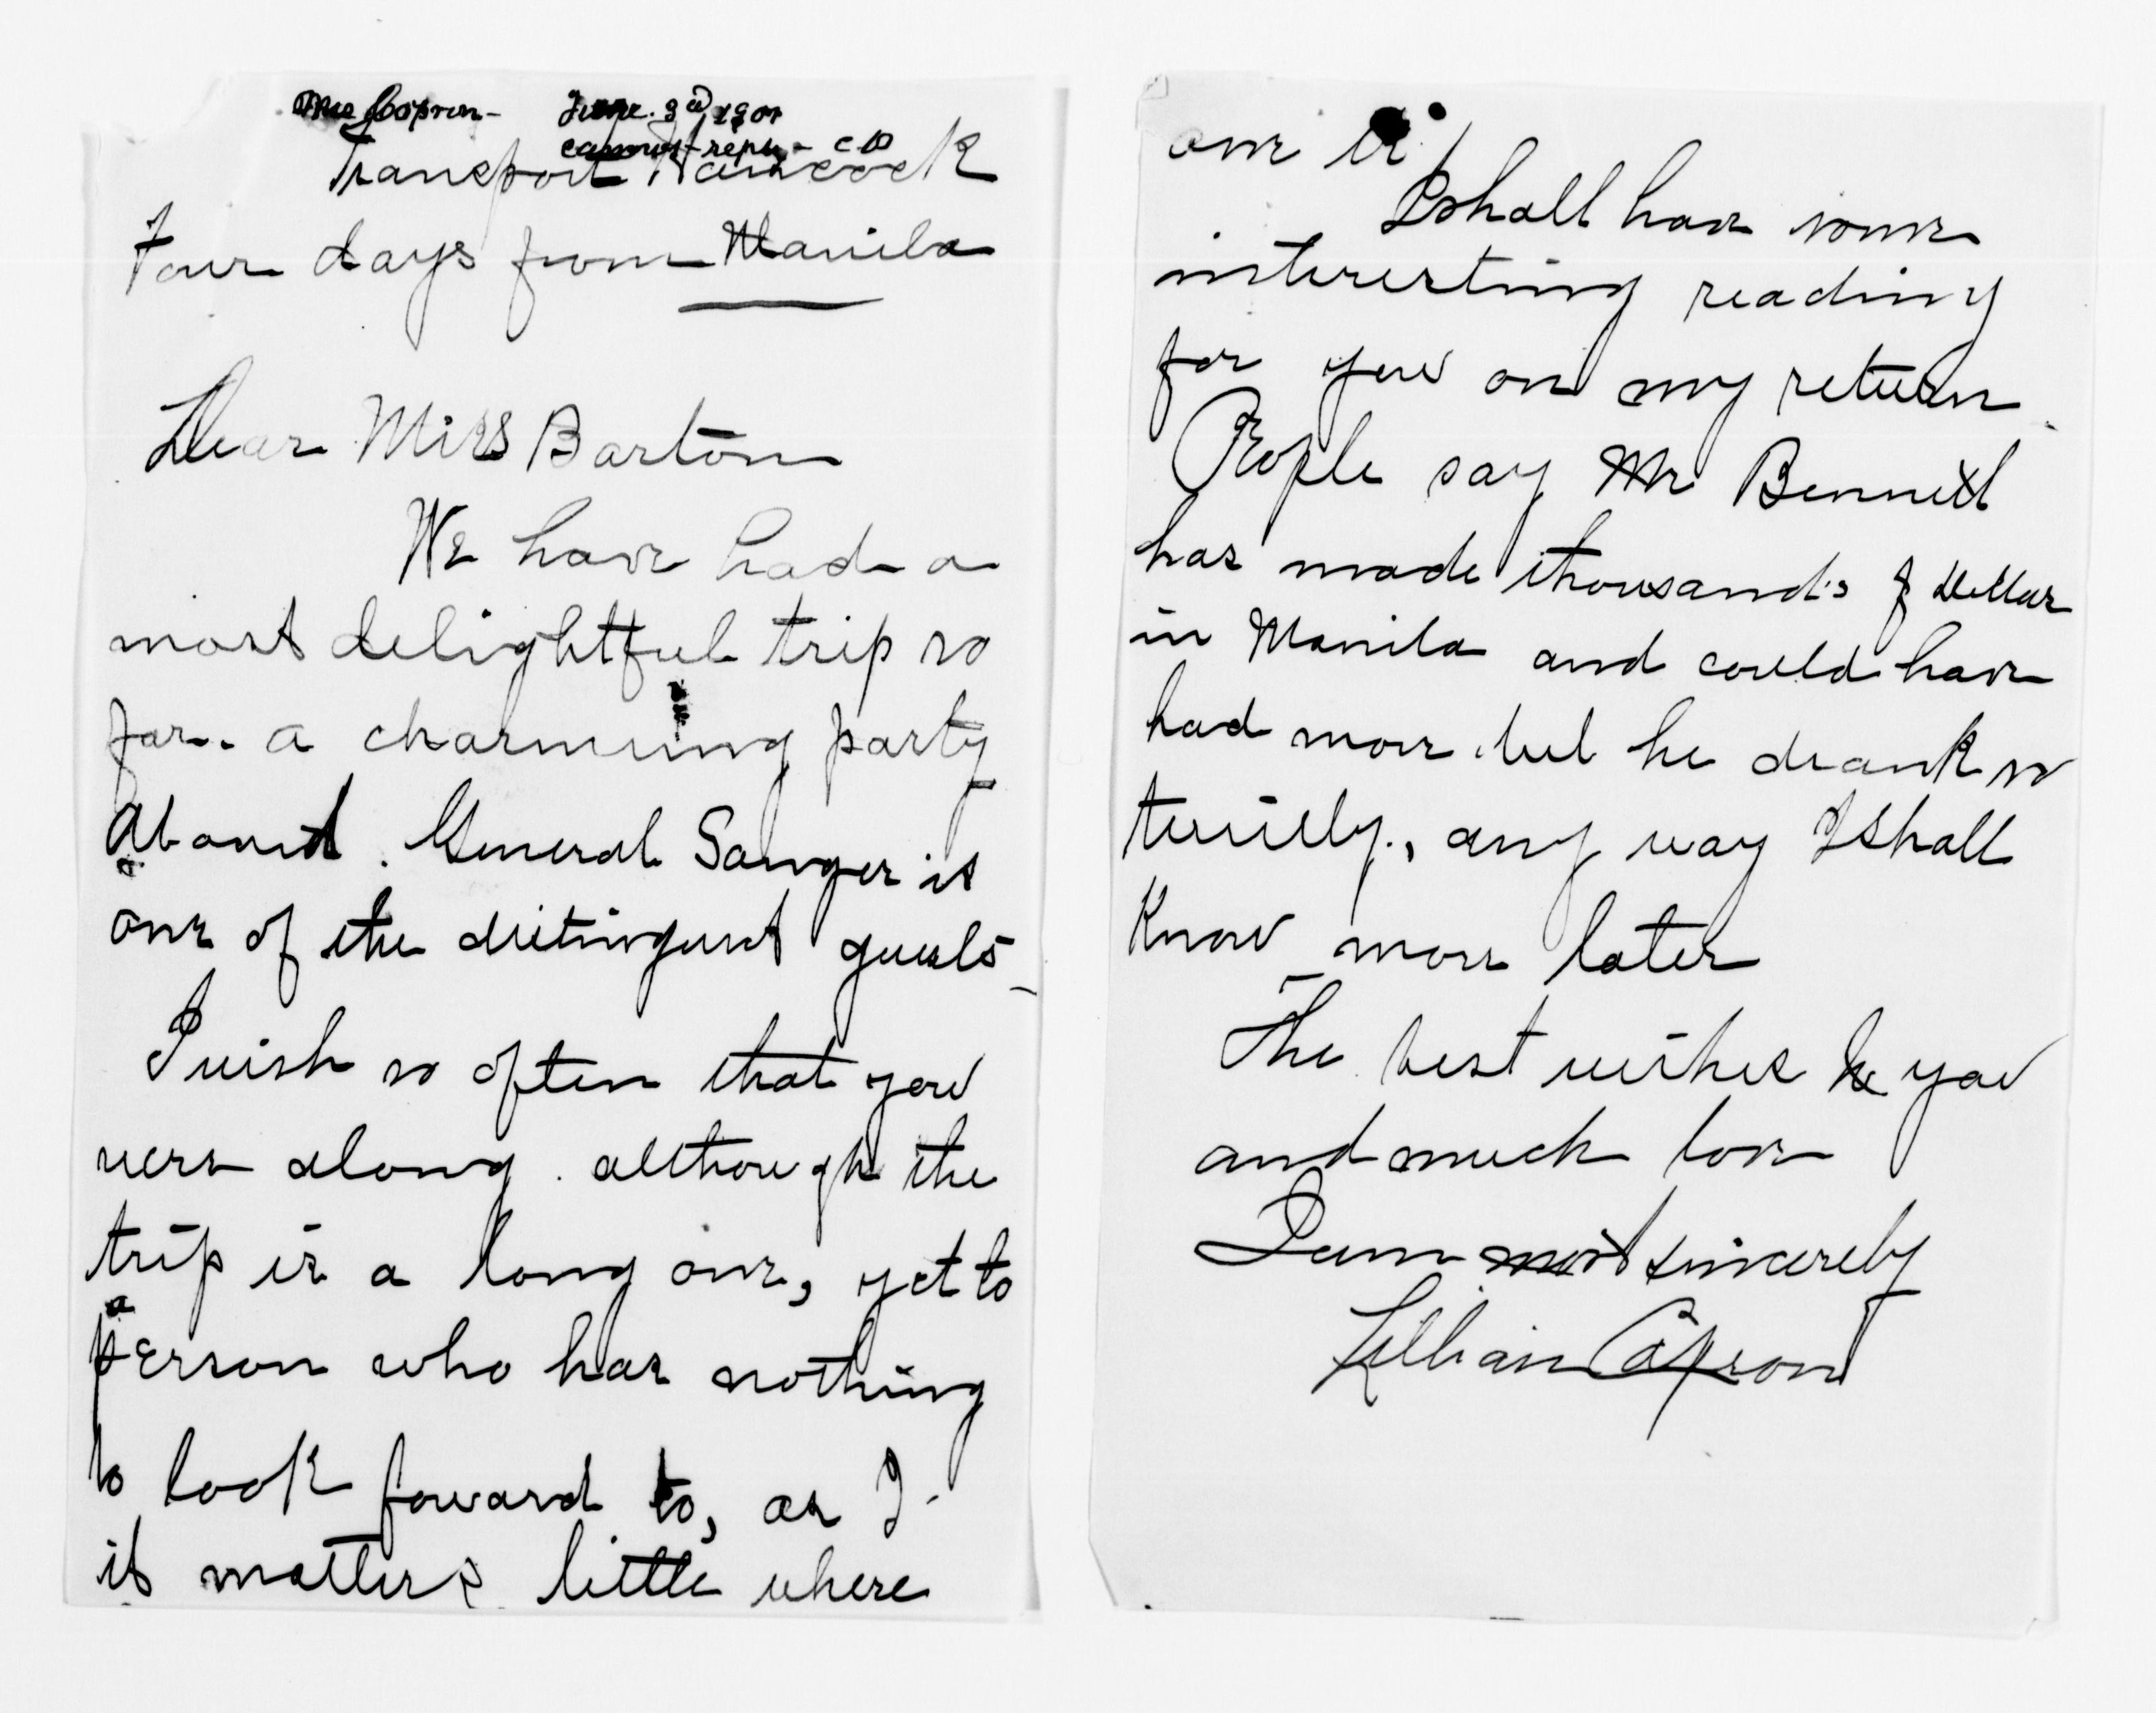 Mrs Capron - June. 3d 1901
cannot reply - CB
Transport Hancock
Four days from Manila
Dear Miss Barton
We have had a
most delightful trip so
far. a charming party
aboard. General Sanger is
one of the guests -
I wish so often that you
were along. although the
trip is a long one, yet to
a
person who has nothing
to look foward to, as I
it matters little where
one is
I shall have some
interesting reading
for you on my return.
People say Mr Bennett
has made thousands of Dollar
in Manila and could have
had more. but he drank so
terribly., any way I shall
Know more later
The best wishes to you
and much love
I am most sincerely
Lillian Capron